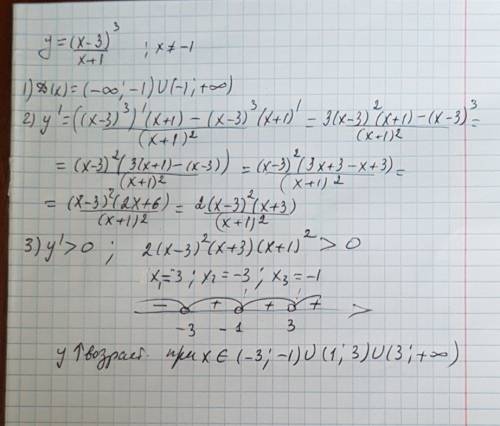 y = (x-3)³/(x+1) ; x ≠ -1
1) D(x) = (-∞; -1) ∪ (-1; +∞)
2) y' = (((x-3)³)'(x+1) - (x-3)³(x+1)')/(x+1)² = (3(x-3)²(x+1) - (x-3)³)/(x+1)² =
= (x-3)²(3(x+1) - (x-3))/(x+1)² = (x-3)²(3x+3-x+3)/(x+1)² =
= (x-3)²(2x+6)/(x+1)² = 2(x-3)²(x+3)/(x+1)²
3) y' > 0 ; 2(x-3)²(x+3)(x+1)² > 0
x₁=3 ; x₂=-3 ; x₃=-1
- + + +
-3 -1 3
y ↑ возраст. при x ∈ (-3; -1) ∪ (1; 3) ∪ (3; +∞)